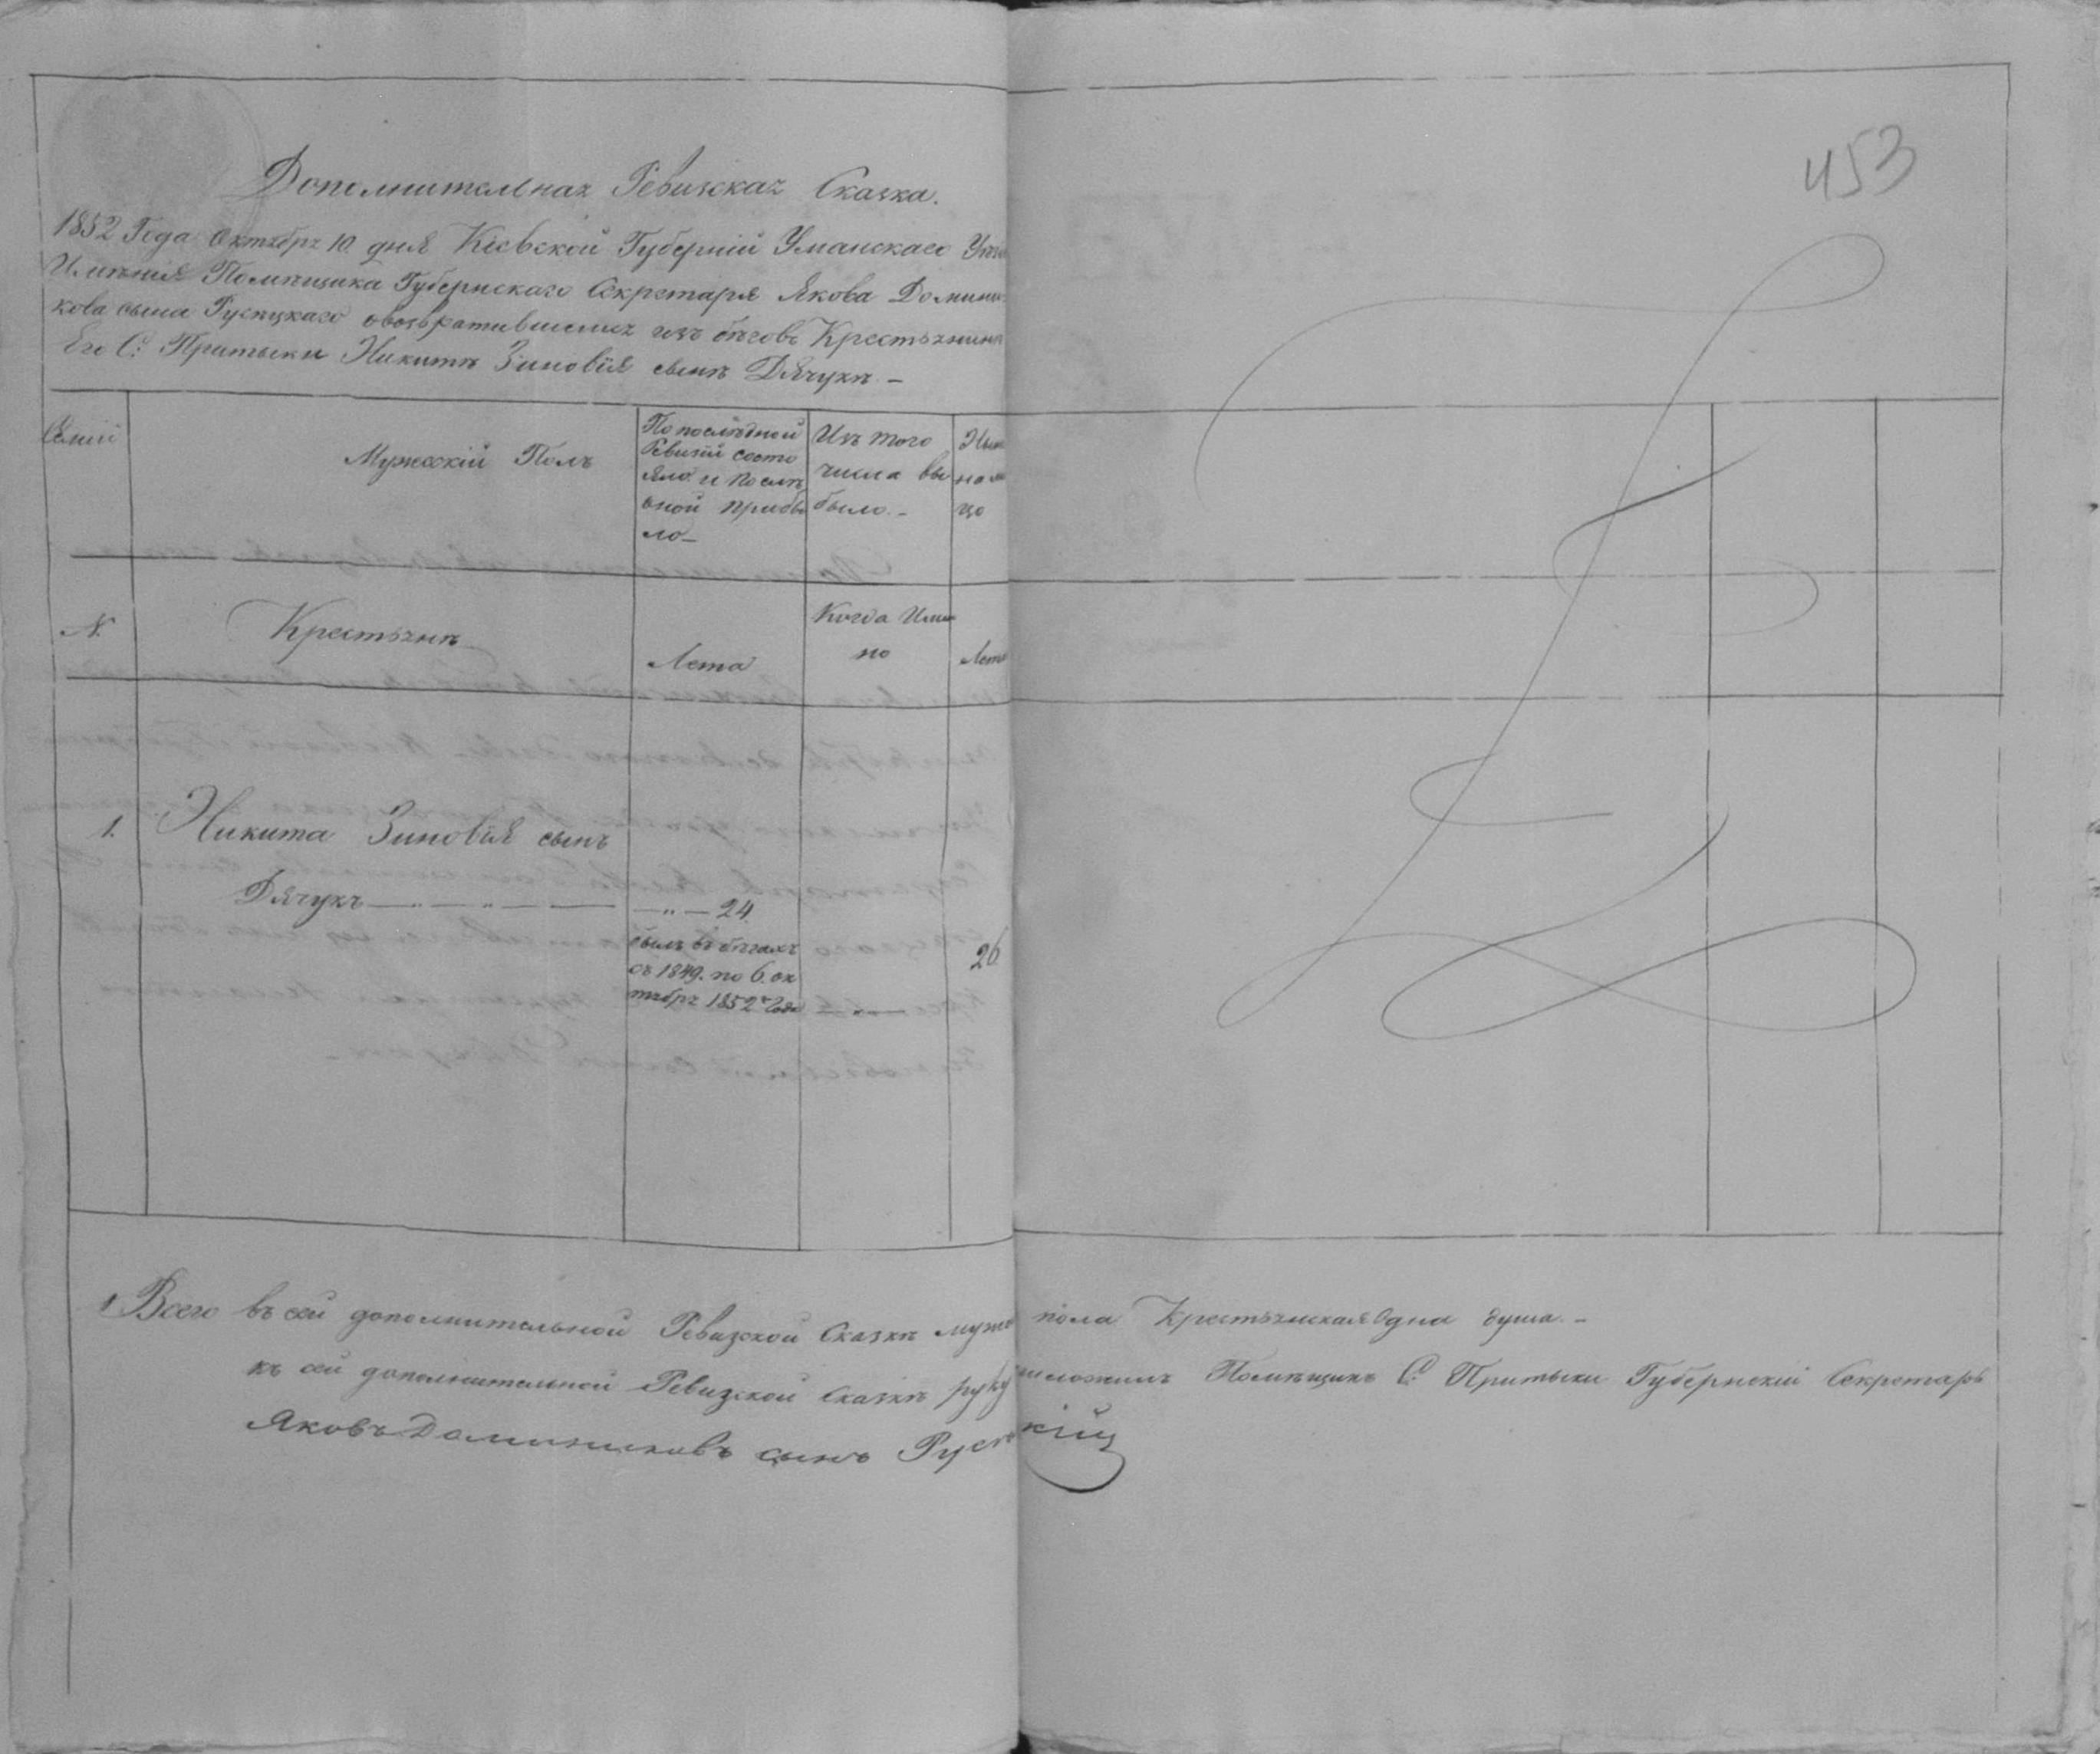 453
Дополнителная Ревизская Сказка.
1852 Года Октября 10 дня Кіевской Губерніи Уманскаго Уезда
Имѣнія Помѣщика Губернскаго Секретаря Якова Домини-
кова сына Рускаго овозвратившемся изъ бѣговъ Крестьянинѣ
Его С: Притыки Никитѣ Зиновія сынѣ Дячукѣ –
Семіи
Мужескій Полъ
По послѣдной
Ревизіи состо
яло и послѣ
оной прибы
ло –
Изъ того
числа вы
было. –
Ныне
на ли
цо
N.
Крестьянѣ
Лета
Когда Имян
но
Лета
1. Никита Зиновія сынъ
Дячукъ — " — " — — " — 24
былъ въ бѣгахъ
съ 1849. по 6. ок
тября 1852 г Года — " —
26
1 Всего въ сей дополнительной Ревизской Сказкѣ муже пола Крестьянская Одна душа. –
къ сей дополнительной Ревизской сказкѣ руку приложилъ Помѣщикъ С. Притыки Губернскій Секретарь
Яковъ Доминиковъ сынъ